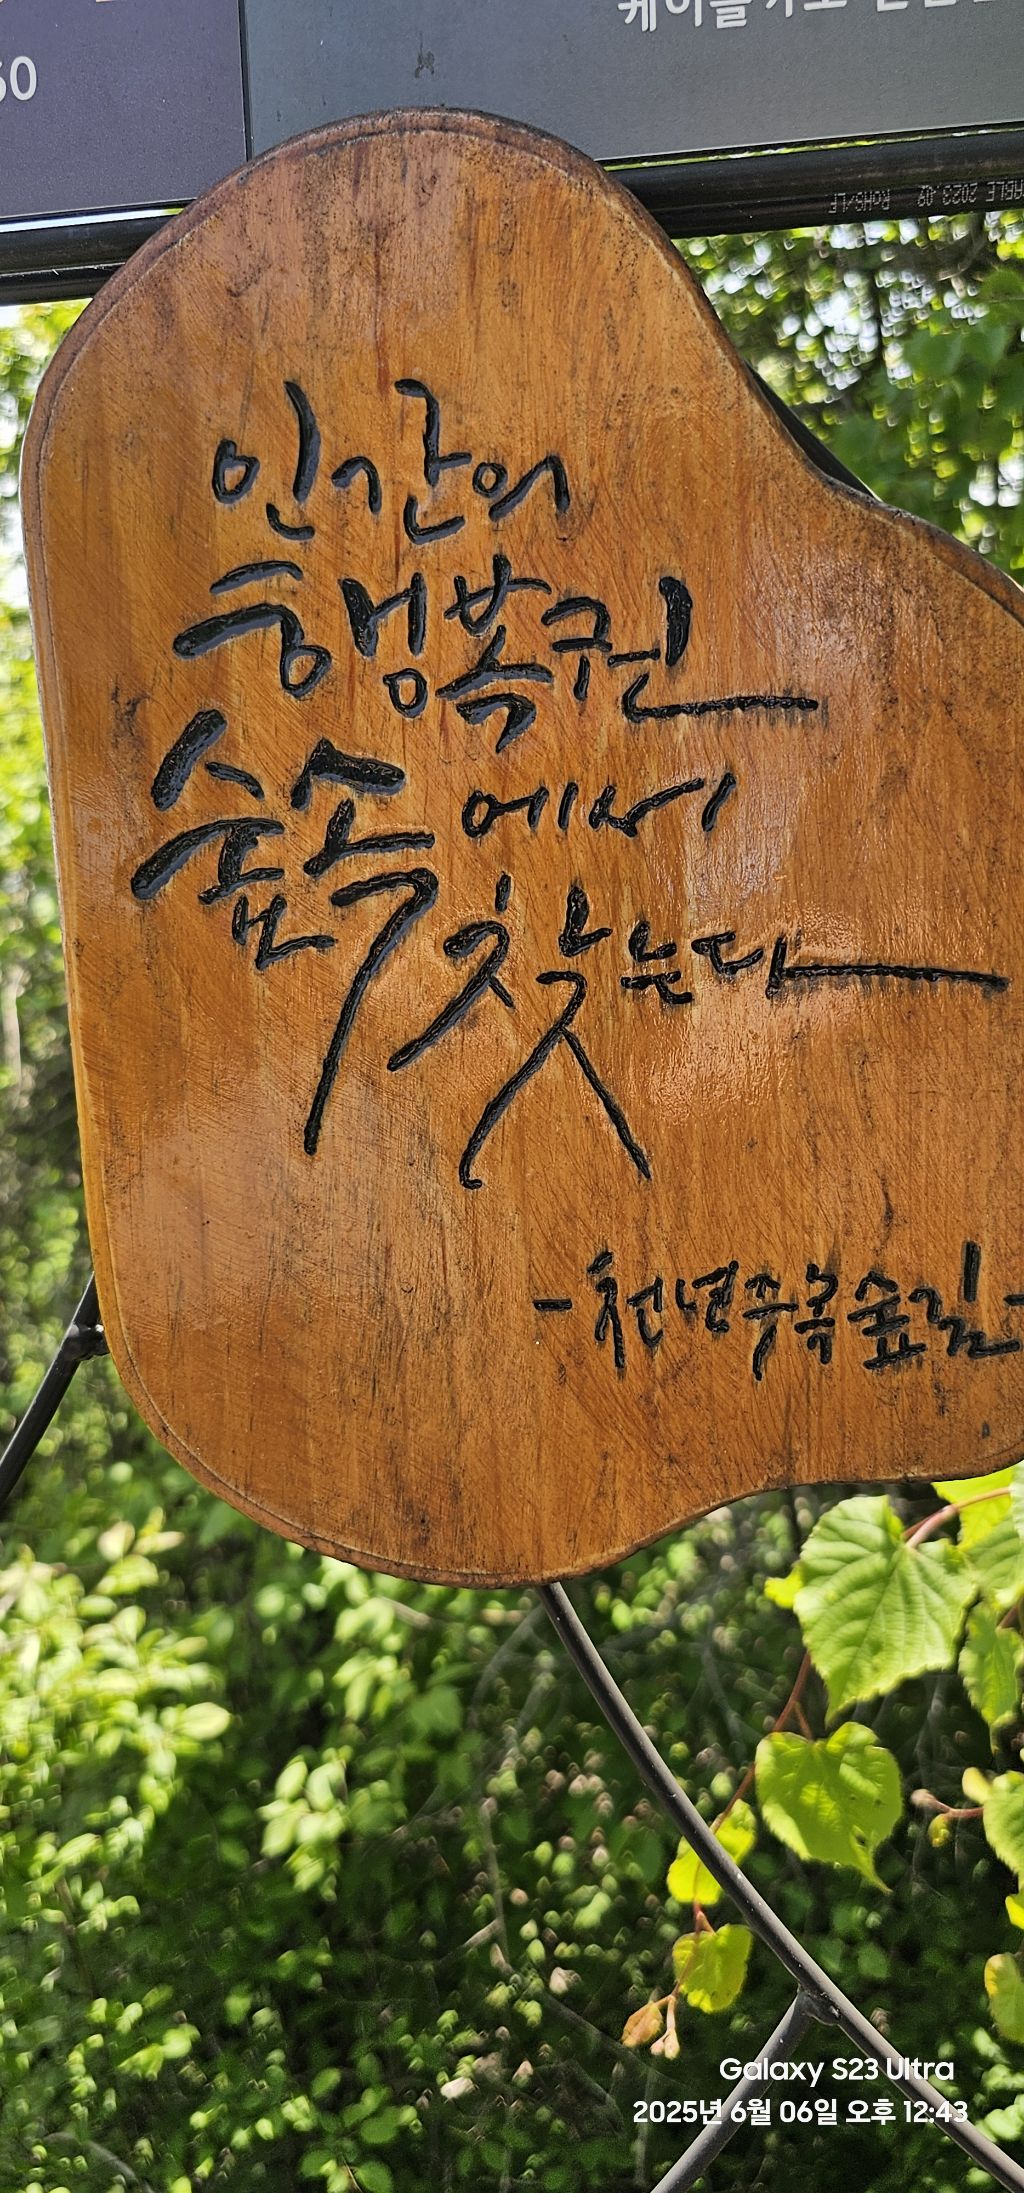 60
인간의
행복권
숲속에서
찾는다
-천년주목숲길-
2023.08 RoHS/LF
Galaxy S23 Ultra
2025년 6월 06일 오후 12:43